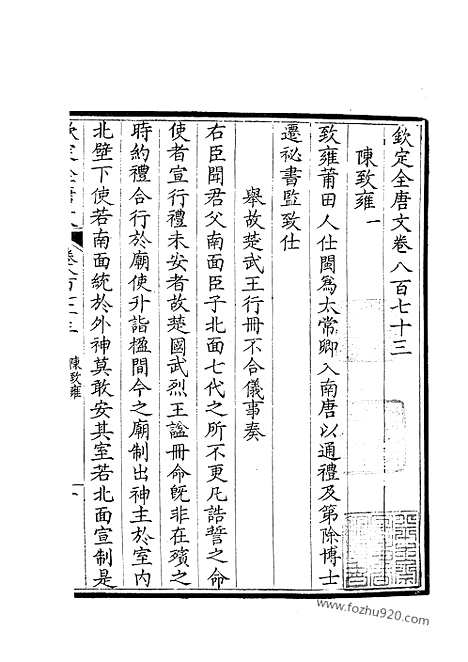 欽定全唐文卷八百七十三
陳致雍一
致雍莆田人仕閩為太常卿入南唐以通禮及第除博士
遷祕書監致仕
舉故楚武王行冊不合儀事奏
右臣聞君父南面臣子北面七代之所不更凡誥誓之命
使者宣行禮未安者故楚國武烈王諡冊命旣非在殯之
時約禮合行於廟使升詣楹間今之廟制出神主於室內
北壁下使若南面統於外神莫敢安其室若北面宣制是
欽定全唐文 卷八百七十三 陳致雍 一
www.fozhu920.com